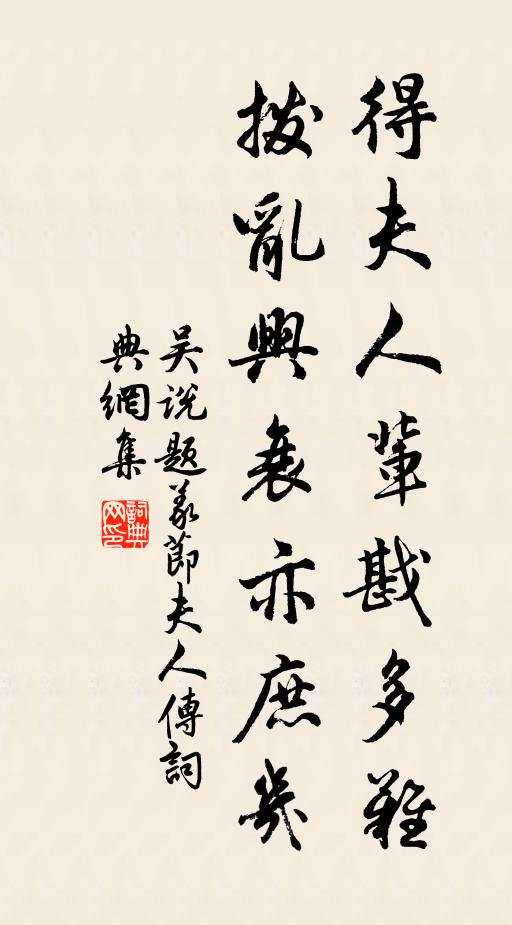 得夫人輩戡多難
撥亂興衰亦庶幾
吴說題義節夫人傳詞
典網集
詞典
网印